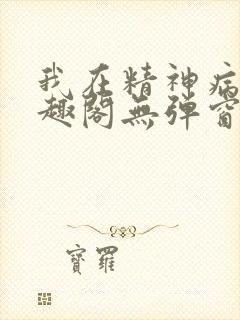 我在精神病
趣阁无弹窗
寶羅